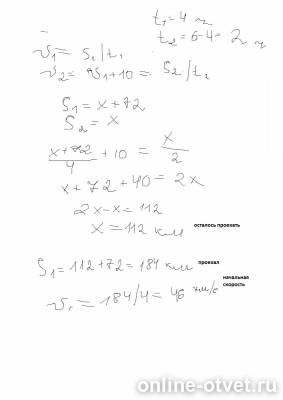 t₁ = 4 ч
t₂ = 6-4 = 2 ч
v₁ = S₁/t₁
v₂ = v₁+10 = S₂/t₂
S₁ = x+72
S₂ = x
(x+72)/4 + 10 = x/2
x+72+40 = 2x
2x-x = 112
x = 112 км осталось проехать
S₁ = 112+72 = 184 км проехал
v₁ = 184/4 = 46 км/с начальная скорость
online-otvet.ru